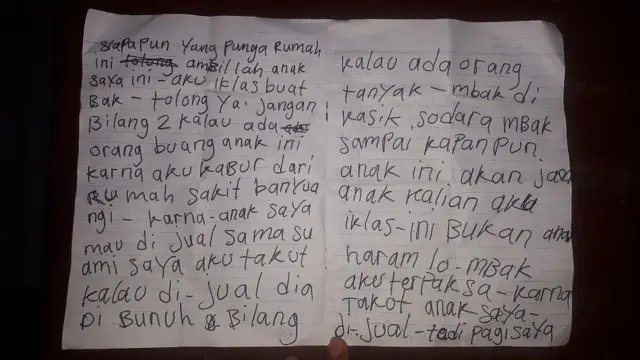 siapapun Yang punga Rumah
ini tolong ambillah anak
saya ini - aku iklas buat
Bak - tolong Ya. jangan
Bilang 2 kalau ada
orang buang anak ini
karna aku kabur dari
Rumah sakit banyua
ngi - karna - anak saya
mau di jual sama su
ami saya aku takut
kalau di - jual dia
Di Bunuh Bilang
kalau ada orang
tanyak - mbak di
kasik, sodara mBak
sampai kapanpun.
anak ini akan jadi
anak kalian aku
iklas - ini Bukan anak
haram lo - mBak
aku terpaksa - karna
Takot anak saya -
di - jual - tadi pagi saya